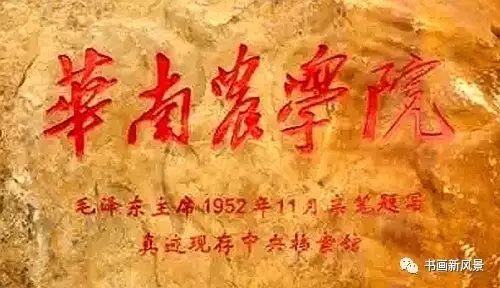 華南農學院
毛泽东主席1952年11月亲笔题写
真迹现存中央档案馆
书画新风景